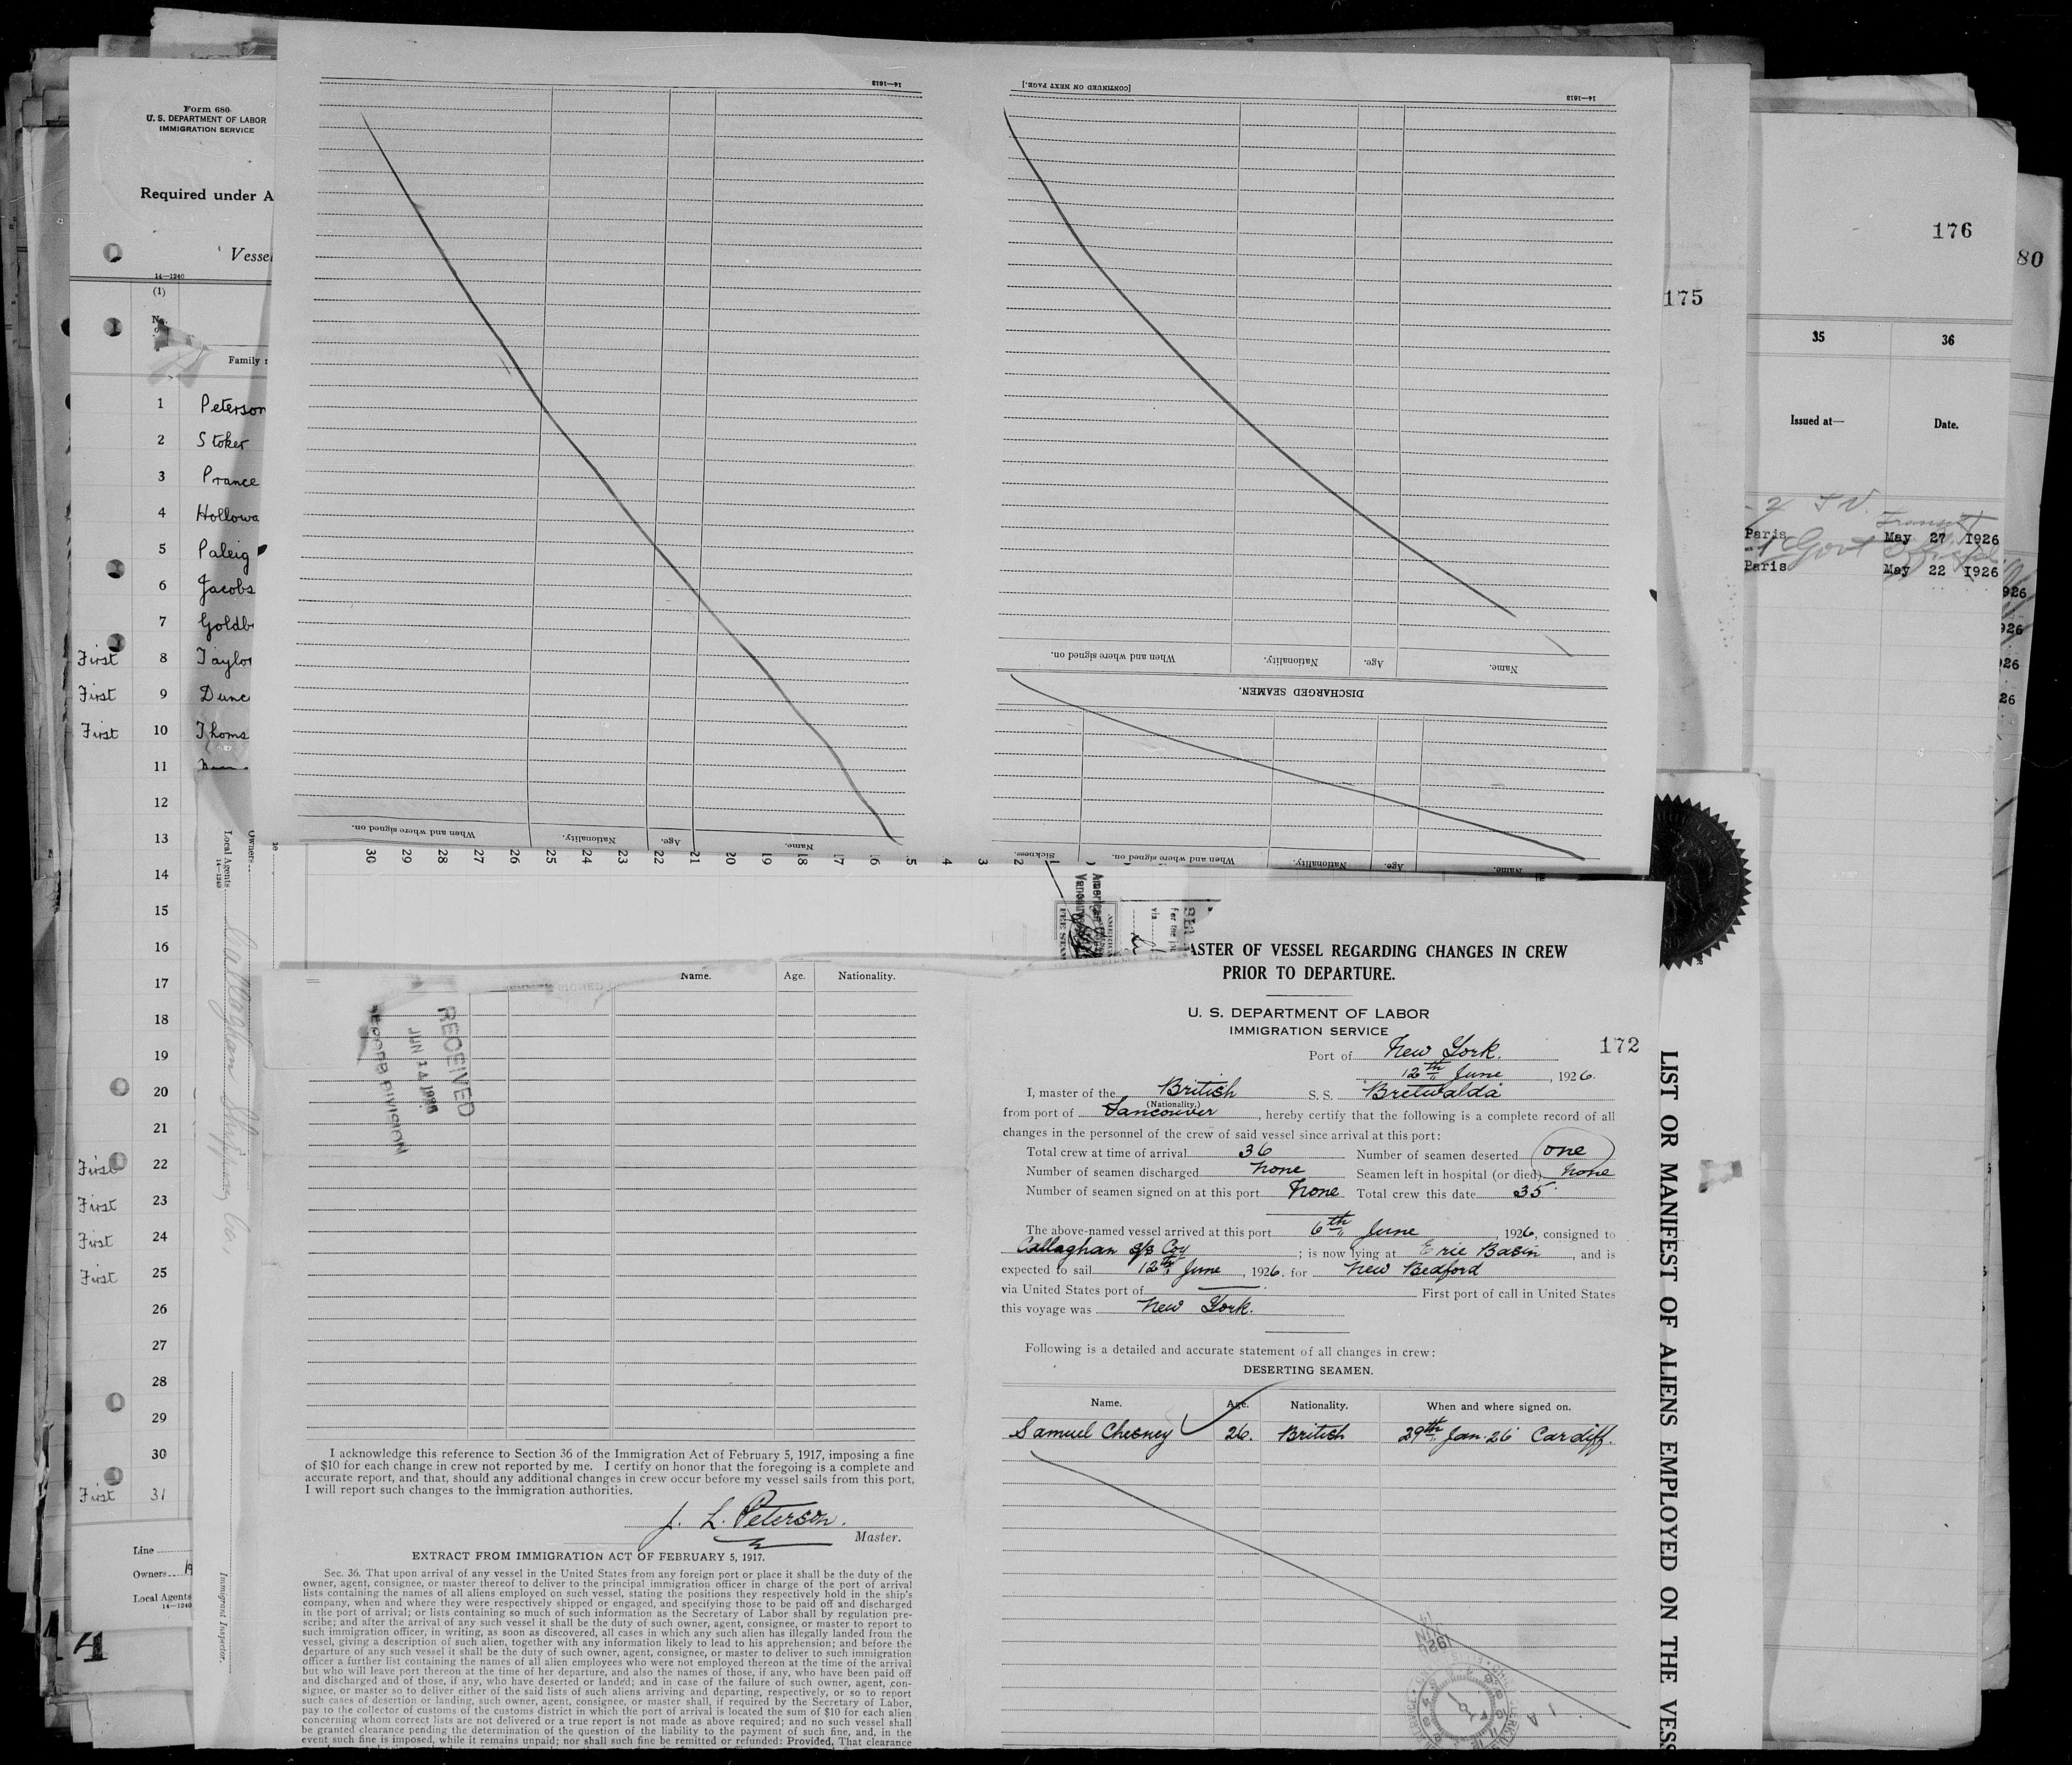 Form 680
U. S. DEPARTMENT OF LABOR
IMMIGRATION SERVICE
Required under A
Vessel
14—1240
(1)
No.
Family n
1 Peterson
2 Stoker
3 Prance
4 Hollowa
5 Paleig
6 Jacobs
7 Goldb
First 8 Taylo
First 9 Dunc
First 10 Thoms
11
12
13
14
15
16
17
18
19
20
21
First 22
First 23
First 24
First 25
26
27
28
29
30
First 31
Line
Owners
Local Agents
14—1240
4
Owners
Local Agents
14—1240
Callaghan Shipping Co.,
Immigrant Inspector.
14—1613
When and where signed on.
Nationality.
Age.
Name.
[CONTINUED ON NEXT PAGE.]
14—1613
When and where signed on.
Nationality.
Age.
Name.
DISCHARGED SEAMEN.
Sickness.
When and where signed on.
Nationality.
Age.
Name.
30 29 28 27 26 25 24 23 22 21 20 19 18 17 16 5 4 3 2 1
American
Vancouv
for the jo
via
FEE STAM
Name. Age. Nationality.
RECEIVED
JUN 14 1926
RECORD DIVISION
I acknowledge this reference to Section 36 of the Immigration Act of February 5, 1917, imposing a fine
of $10 for each change in crew not reported by me. I certify on honor that the foregoing is a complete and
accurate report, and that, should any additional changes in crew occur before my vessel sails from this port,
I will report such changes to the immigration authorities.
J. L. Peterson.
Master.
EXTRACT FROM IMMIGRATION ACT OF FEBRUARY 5, 1917.
Sec. 36. That upon arrival of any vessel in the United States from any foreign port or place it shall be the duty of the
owner, agent, consignee, or master thereof to deliver to the principal immigration officer in charge of the port of arrival
lists containing the names of all aliens employed on such vessel, stating the positions they respectively hold in the ship's
company, when and where they were respectively shipped or engaged, and specifying those to be paid off and discharged
in the port of arrival; or lists containing so much of such information as the Secretary of Labor shall by regulation pre-
scribe; and after the arrival of any such vessel it shall be the duty of such owner, agent, consignee, or master to report to
such immigration officer, in writing, as soon as discovered, all cases in which any such alien has illegally landed from the
vessel, giving a description of such alien, together with any information likely to lead to his apprehension; and before the
departure of any such vessel it shall be the duty of such owner, agent, consignee, or master to deliver to such immigration
officer a further list containing the names of all alien employees who were not employed thereon at the time of the arrival
but who will leave port thereon at the time of her departure, and also the names of those, if any, who have been paid off
and discharged and of those, if any, who have deserted or landed; and in case of the failure of such owner, agent, con-
signee, or master so to deliver either of the said lists of such aliens arriving and departing, respectively, or so to report
such cases of desertion or landing, such owner, agent, consignee, or master shall, if required by the Secretary of Labor,
pay to the collector of customs of the customs district in which the port of arrival is located the sum of $10 for each alien
concerning whom correct lists are not delivered or a true report is not made as above required; and no such vessel shall
be granted clearance pending the determination of the question of the liability to the payment of such fine, and, in the
event such fine is imposed, while it remains unpaid; nor shall such fine be remitted or refunded: Provided, That clearance
ASTER OF VESSEL REGARDING CHANGES IN CREW
PRIOR TO DEPARTURE.
U. S. DEPARTMENT OF LABOR
IMMIGRATION SERVICE
172
Port of New York.
12th June, 1926.
I, master of the British S. S. Bretwalda
(Nationality.)
from port of Vancouver, hereby certify that the following is a complete record of all
changes in the personnel of the crew of said vessel since arrival at this port:
Total crew at time of arrival 36 Number of seamen deserted one
Number of seamen discharged None Seamen left in hospital (or died) None
Number of seamen signed on at this port None Total crew this date 35
The above-named vessel arrived at this port 6th June, 1926, consigned to
Callaghan S/S Coy; is now lying at Erie Basin, and is
expected to sail 12th June, 1926. for New Bedford
via United States port of First port of call in United States
this voyage was New York.
Following is a detailed and accurate statement of all changes in crew:
DESERTING SEAMEN.
Name. Age. Nationality. When and where signed on.
Samuel Chesney 26. British 29th Jan. 26 Cardiff.
LIST OR MANIFEST OF ALIENS EMPLOYED ON THE VESS
175
176
80
35 36
Issued at— Date.
- 2 T.V.
Transit
Paris May 27 1926
-1 Govt Official
Paris May 22 1926
926
926
26
26